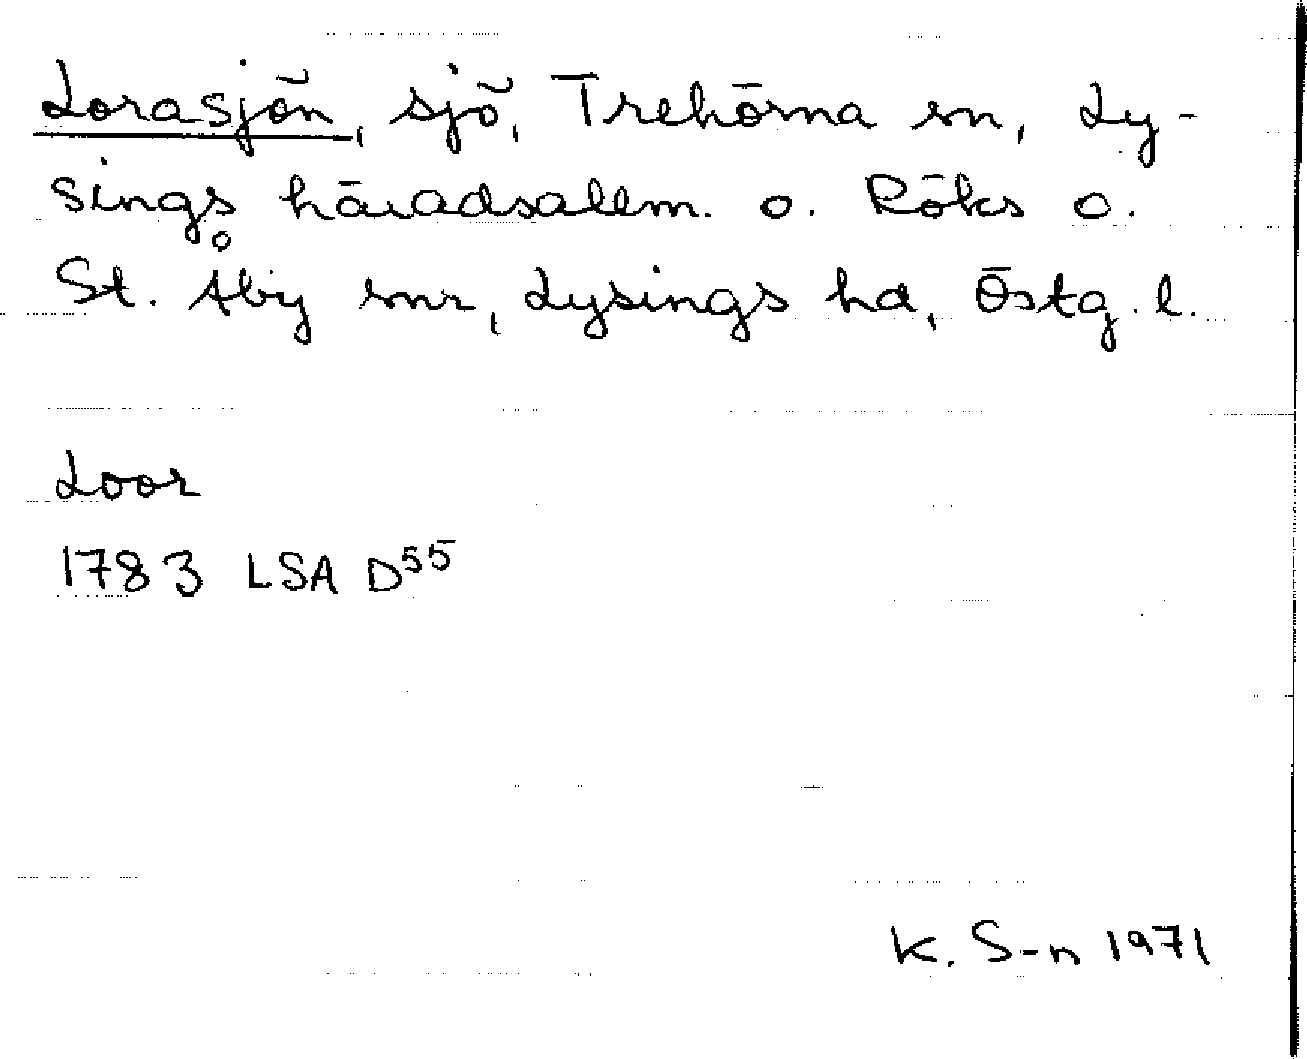 Lorasjön, sjö, Trehörna sn, Ly-
sings häradsallm. o. Röks o.
St. Åby snr, Lysings hd, Östg. l.
Loor
1783 LSA D55
K. S-n 1971